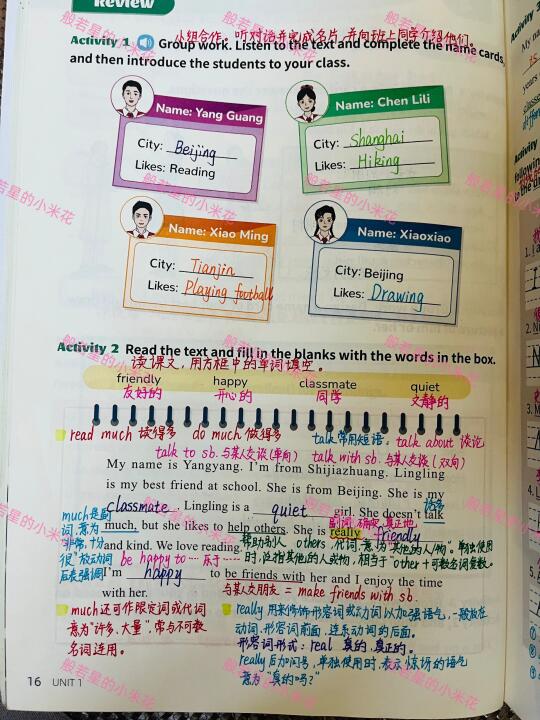 Review
小组合作。听对话并完成名片,并向班上同学介绍他们。
Activity 1 Group work. Listen to the text and complete the name cards,
and then introduce the students to your class.
Name: Yang Guang
City: Beijing
Likes: Reading
Name: Chen Lili
City: Shanghai
Likes: Hiking
Name: Xiao Ming
City: Tianjin
Likes: Playing football
Name: Xiaoxiao
City: Beijing
Likes: Drawing
Activity 2 Read the text and fill in the blanks with the words in the box.
读课文,用方框中的单词填空。
friendly happy classmate quiet
友好的 开心的 同学 文静的
read much 读得多 do much 做得多 talk 常用短语:talk about 谈论
talk to sb. 与某人交谈(单向) talk with sb. 与某人交谈(双向)
My name is Yangyang. I'm from Shijiazhuang. Lingling
is my best friend at school. She is from Beijing. She is my
classmate. Lingling is a quiet girl. She doesn't talk
much, but she likes to help others. She is really friendly
and kind. We love reading.
I'm happy to be friends with her and I enjoy the time
with her.
much是副
词,意为
"非常,十分
很"放动词
后表强调
副词,确实,真正地
帮助别人 others,代词,意为"其他的人/物"。单独使用
时,泛指其他的人或物,相当于"other+可数名词复数。
be happy to … 乐于…
与某人交朋友 = make friends with sb.
much还可作限定词或代词
意为"许多、大量",常与不可数
名词连用。
really 用来修饰形容词或动词以加强语气,一般放在
动词、形容词前面,连系动词的后面。
形容词形式:real 真的,真正的。
really后加问号,单独使用时,表示惊讶的语气
意为"真的吗?"
16 UNIT 1
般若星的小米花